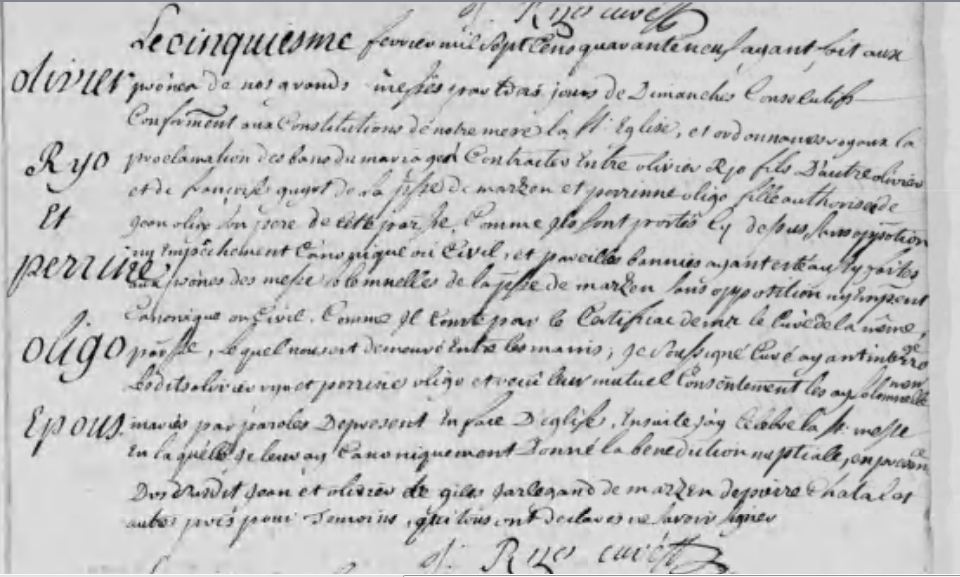 Ryo curé
Le cinquiesme fevrier mil sept cens quarante neuf, ayant fait aux
olivier prônes de nos grands messes par trois jours de Dimanches Consecutifs
Conforment aux Constitutions de notre mere la Ste Eglise, et ordonnances royaux la
Ryo proclamation des bans du mariage à Contracter Entre olivier Ryo fils D'autre olivier
et de françoise guyot de la psse de marzen et perrinne oligo fille authorisée de
Et jean oligo son pere de cette parsse, Comme ils sont portés cy dessus, sans oppotion
ny Empêchement Canonique ou Civil, et pareilles bannies ayant esté aussy faites
perrine aux prônes des messe solemnelles de la psse de marzen sans opposition ny Empent
Canonique ou Civil, Comme Il Conste par le Certificat de mr le Curé de la même
oligo parsse, lequel nous est demouré Entre les mains; je soussigné Curé ayant interrogé
lesdits olivier ryo et perrine oligo et reçu leur mutuel Consentement les ay solemnellement
Epous. mariés par paroles De present En face D'eglise, Ensuite j'ay Célébré la Ste messe
En laquelle je leur ay Canoniquement Donné la benediction nuptiale, en presence
Dudit jean et olivier de giles jarlegand de marzen de pierre Chatal et
autres pris pour Temoins, qui tous ont declarés ne savoir signer
Ryo curé